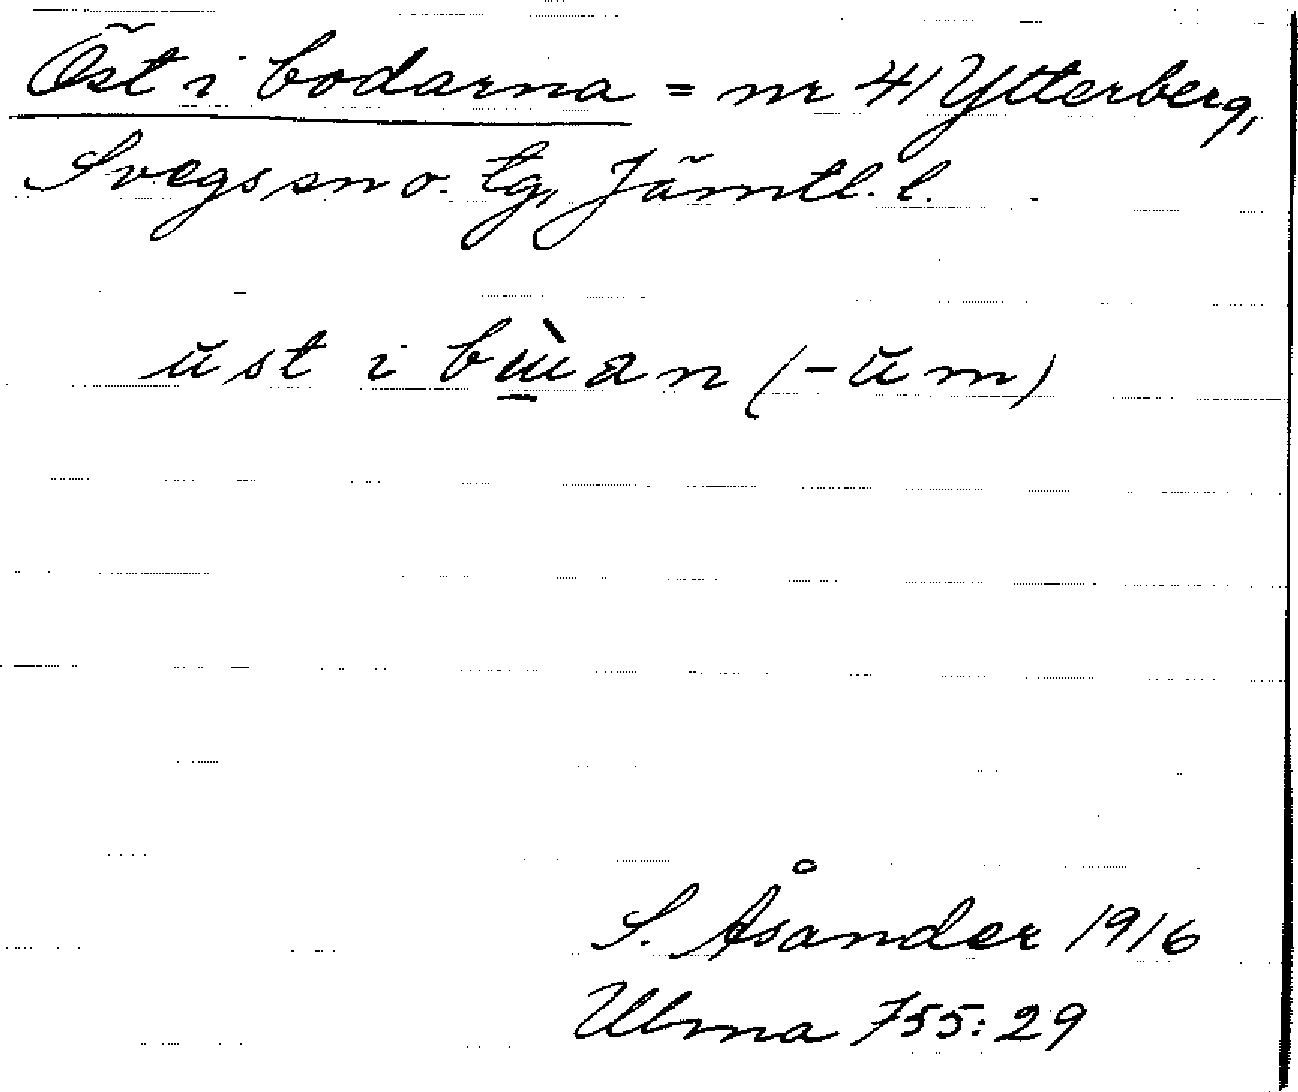 Öst i bodarna = nr 41 Ytterberg,
Svegs sn o. tg, Jämtl. l.
ŭst i bɯ̲̀an (-ŭm)
S. Åsander 1916
Ulma 755:29